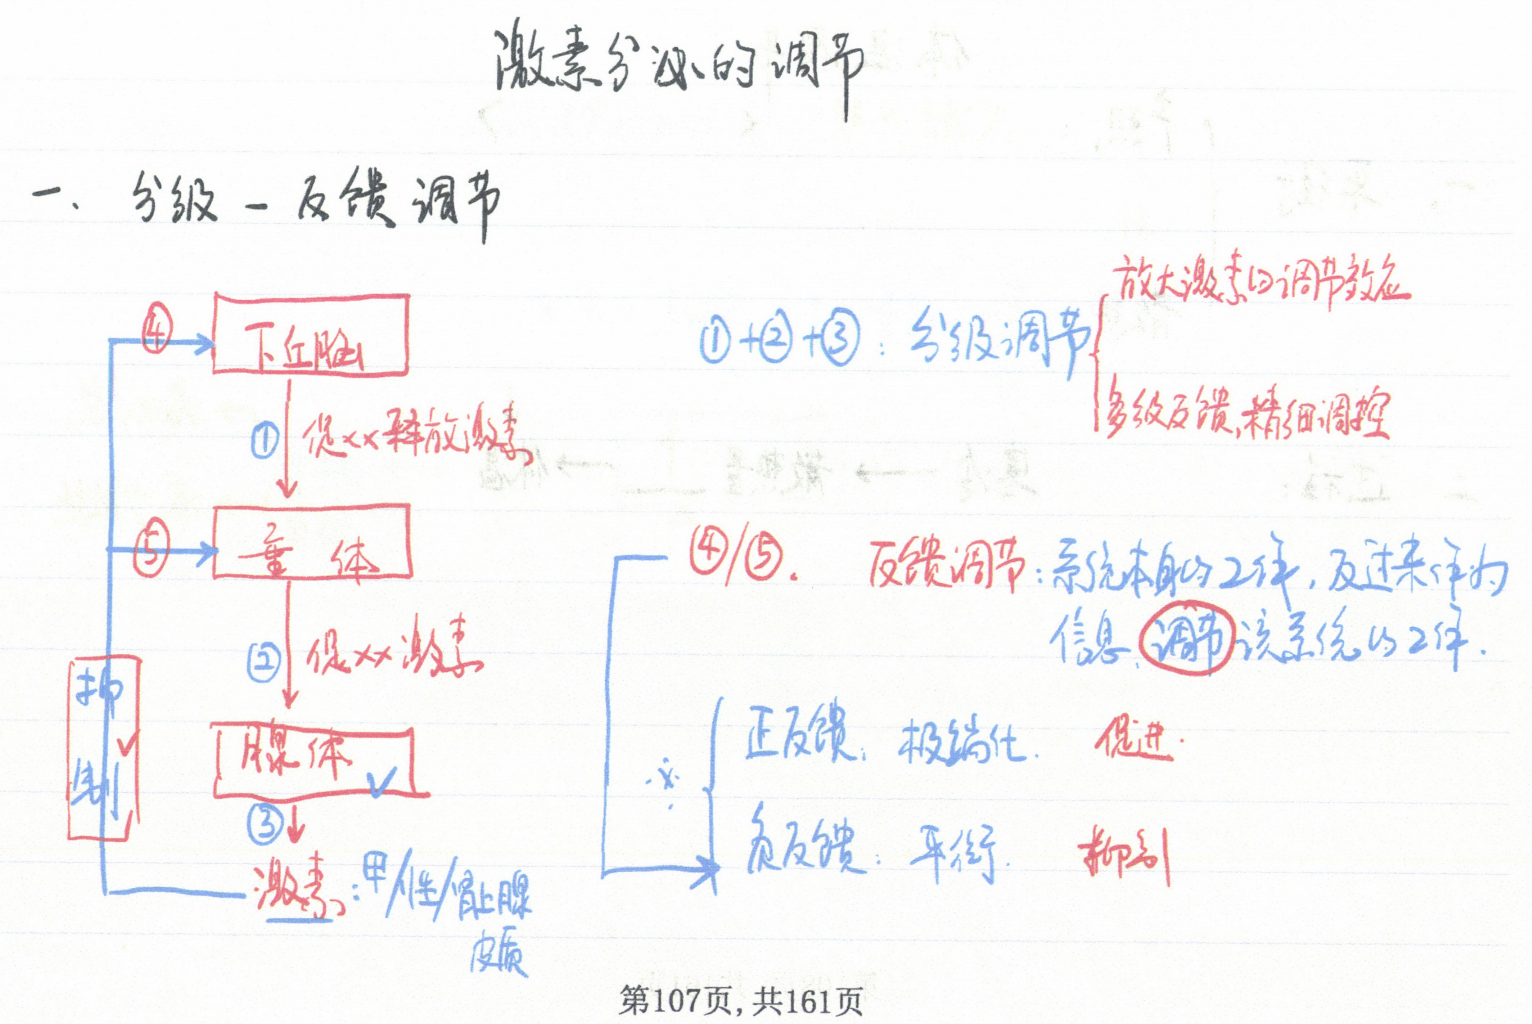 激素分泌的调节
一、分级-反馈调节
④ 下丘脑
① 促xx释放激素
⑤ 垂体
② 促xx激素
抑制
腺体
③
激素:甲/性/肾上腺
皮质
①+②+③:分级调节
放大激素的调节效应
多级反馈,精细调控
④/⑤. 反馈调节:系统本身的工作,反过来作为
信息,调节该系统的工作.
正反馈:极端化. 促进.
负反馈:平衡. 抑制
第107页,共161页